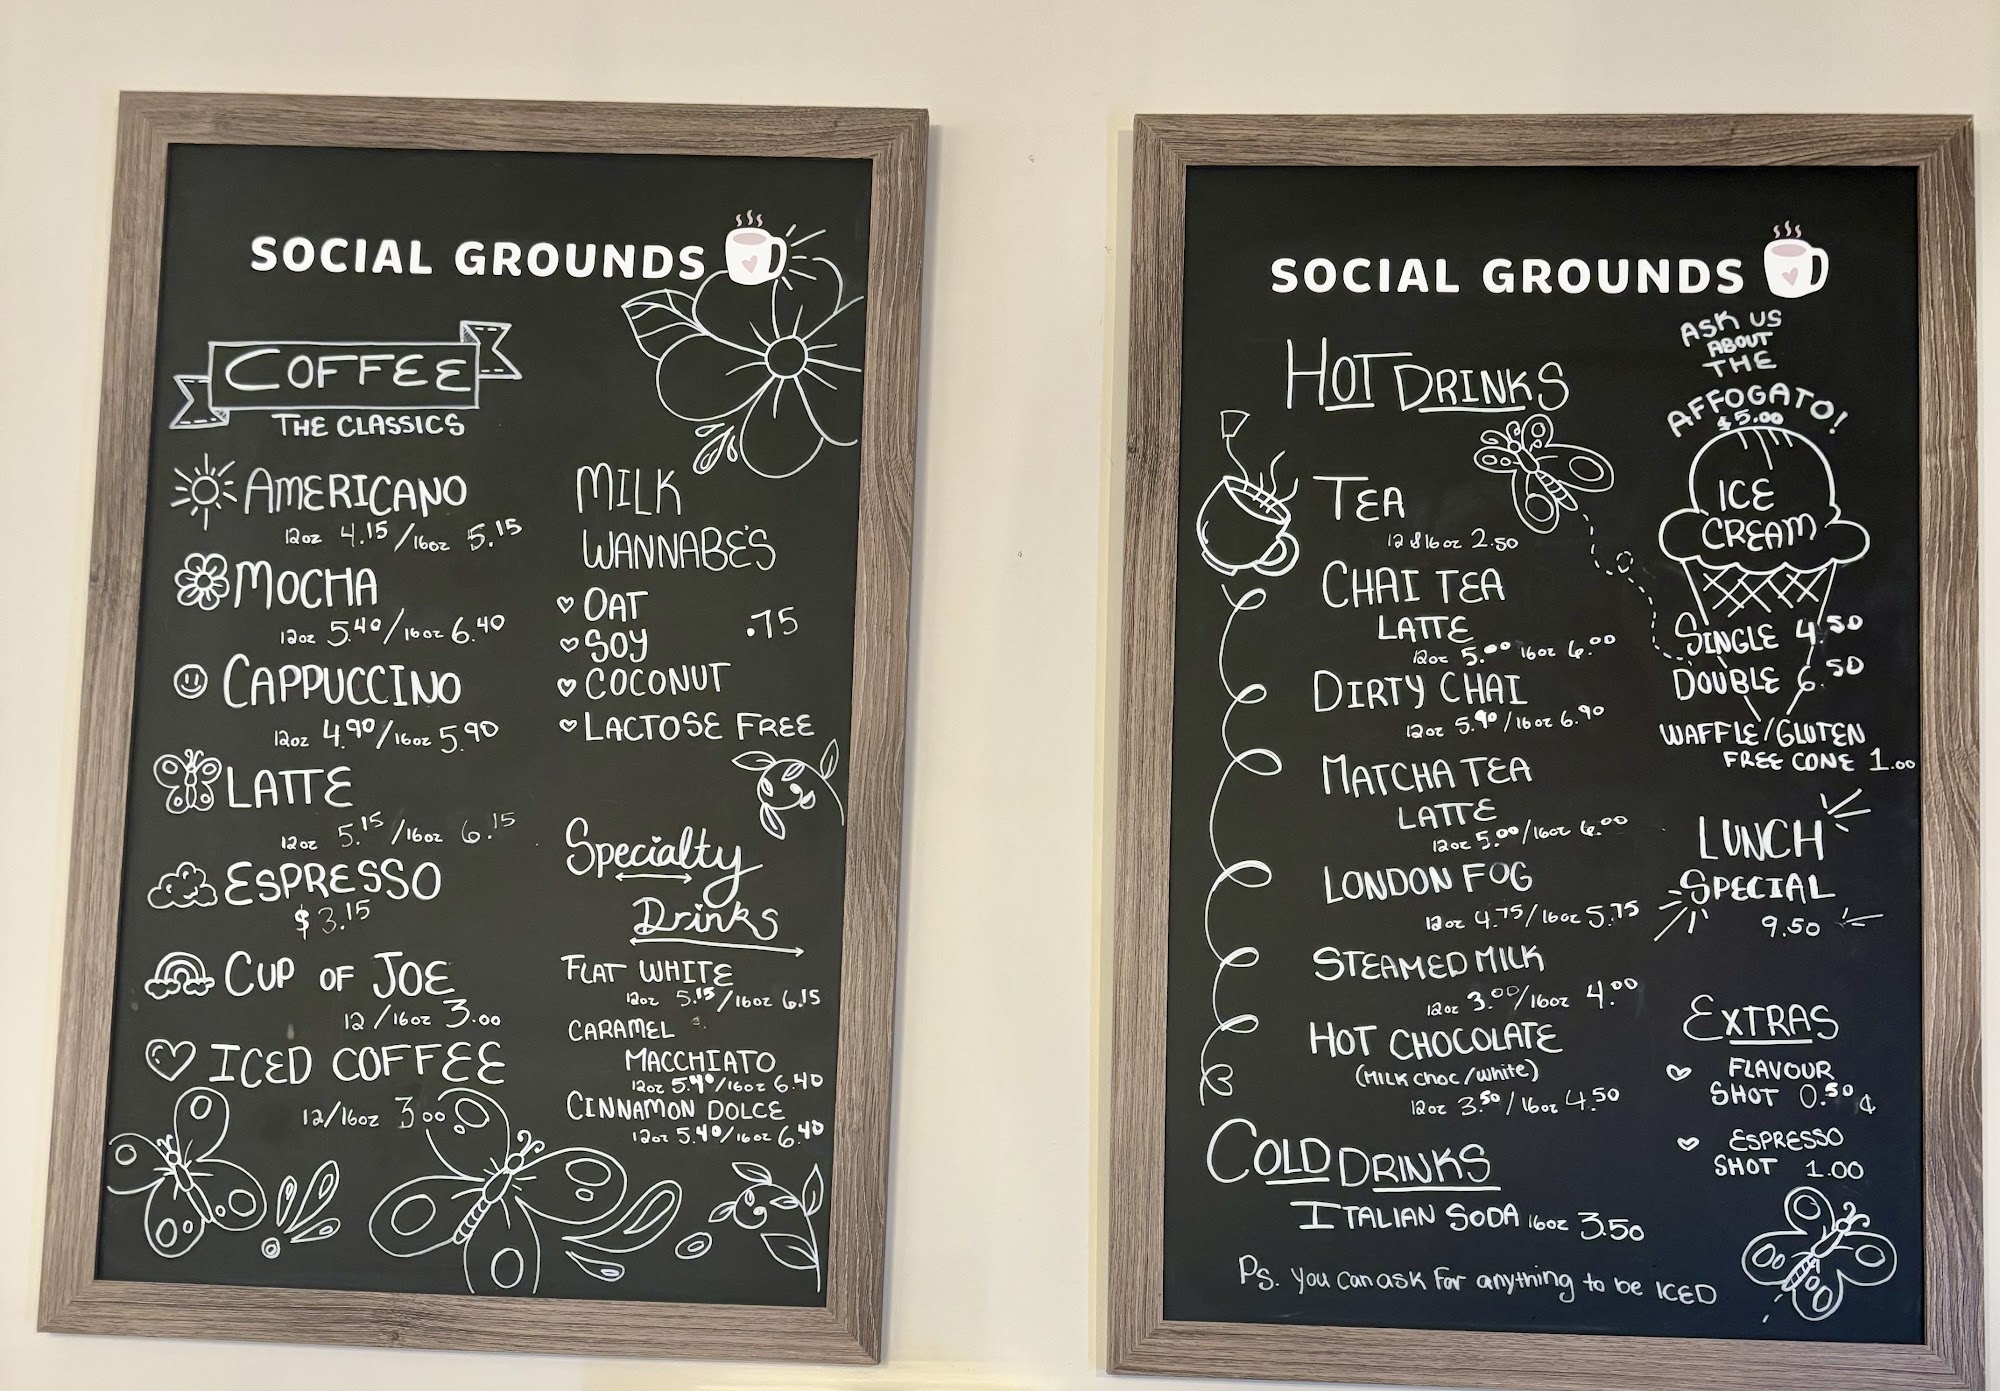 SOCIAL GROUNDS
COFFEE
THE CLASSICS
AMERICANO
12oz 4.15/16oz 5.15
MOCHA
12oz 5.40/16oz 6.40
CAPPUCCINO
12oz 4.90/16oz 5.90
LATTE
12oz 5.15/16oz 6.15
ESPRESSO
$3.15
CUP OF JOE
12/16oz 3.00
ICED COFFEE
12/16oz 3.00
MILK
WANNABE'S
OAT
SOY .75
COCONUT
LACTOSE FREE
Specialty
Drinks
FLAT WHITE
12oz 5.15/16oz 6.15
CARAMEL
MACCHIATO
12oz 5.40/16oz 6.40
CINNAMON DOLCE
12oz 5.40/16oz 6.40
SOCIAL GROUNDS
HOT DRINKS
TEA
12 & 16oz 2.50
CHAI TEA
LATTE
12oz 5.00 16oz 6.00
DIRTY CHAI
12oz 5.90/16oz 6.90
MATCHA TEA
LATTE
12oz 5.00/16oz 6.00
LONDON FOG
12oz 4.75/16oz 5.75
STEAMED MILK
12oz 3.00/16oz 4.00
HOT CHOCOLATE
(MILK CHOC/WHITE)
12oz 3.50/16oz 4.50
COLD DRINKS
ITALIAN SODA 16oz 3.50
Ps. you can ask for anything to be ICED
ASK US
ABOUT
THE
AFFOGATO!
$5.00
ICE
CREAM
SINGLE 4.50
DOUBLE 6.50
WAFFLE/GLUTEN
FREE CONE 1.00
LUNCH
SPECIAL
9.50
EXTRAS
FLAVOUR
SHOT 0.50¢
ESPRESSO
SHOT 1.00